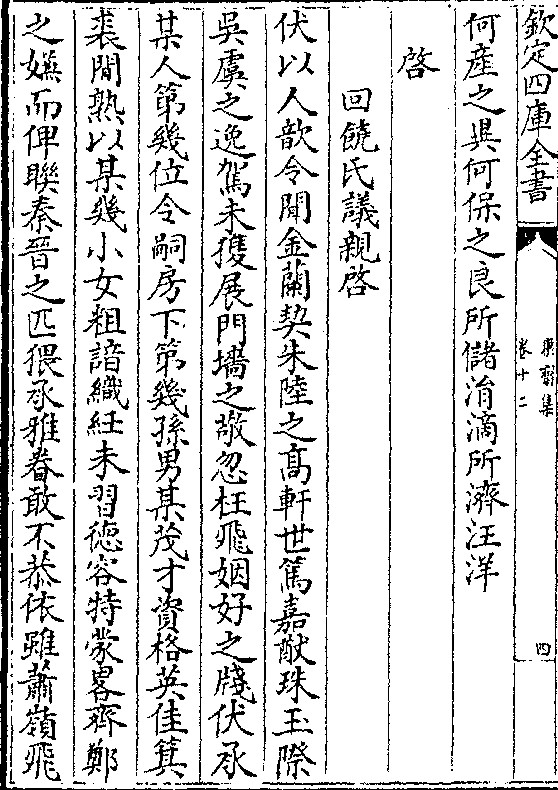 欽定四庫全書
卷十二
四
何產之異何保之良所儲涓滴所濟汪洋
啓
回饒氏議親啓
伏以人歆令聞金蘭契朱陸之髙軒世篤嘉猷珠玉際
吳虞之逸駕未獲展門墻之敬忽枉飛姻好之牋伏承
某人第幾位令嗣房下第幾孫男某茂才資格英佳箕
裘閒熟以某幾小女粗諳織紝未習徳容特蒙畧齊鄭
之嫌而俾聯秦晉之匹猥承雅眷敢不恭依雖蕭嶺飛